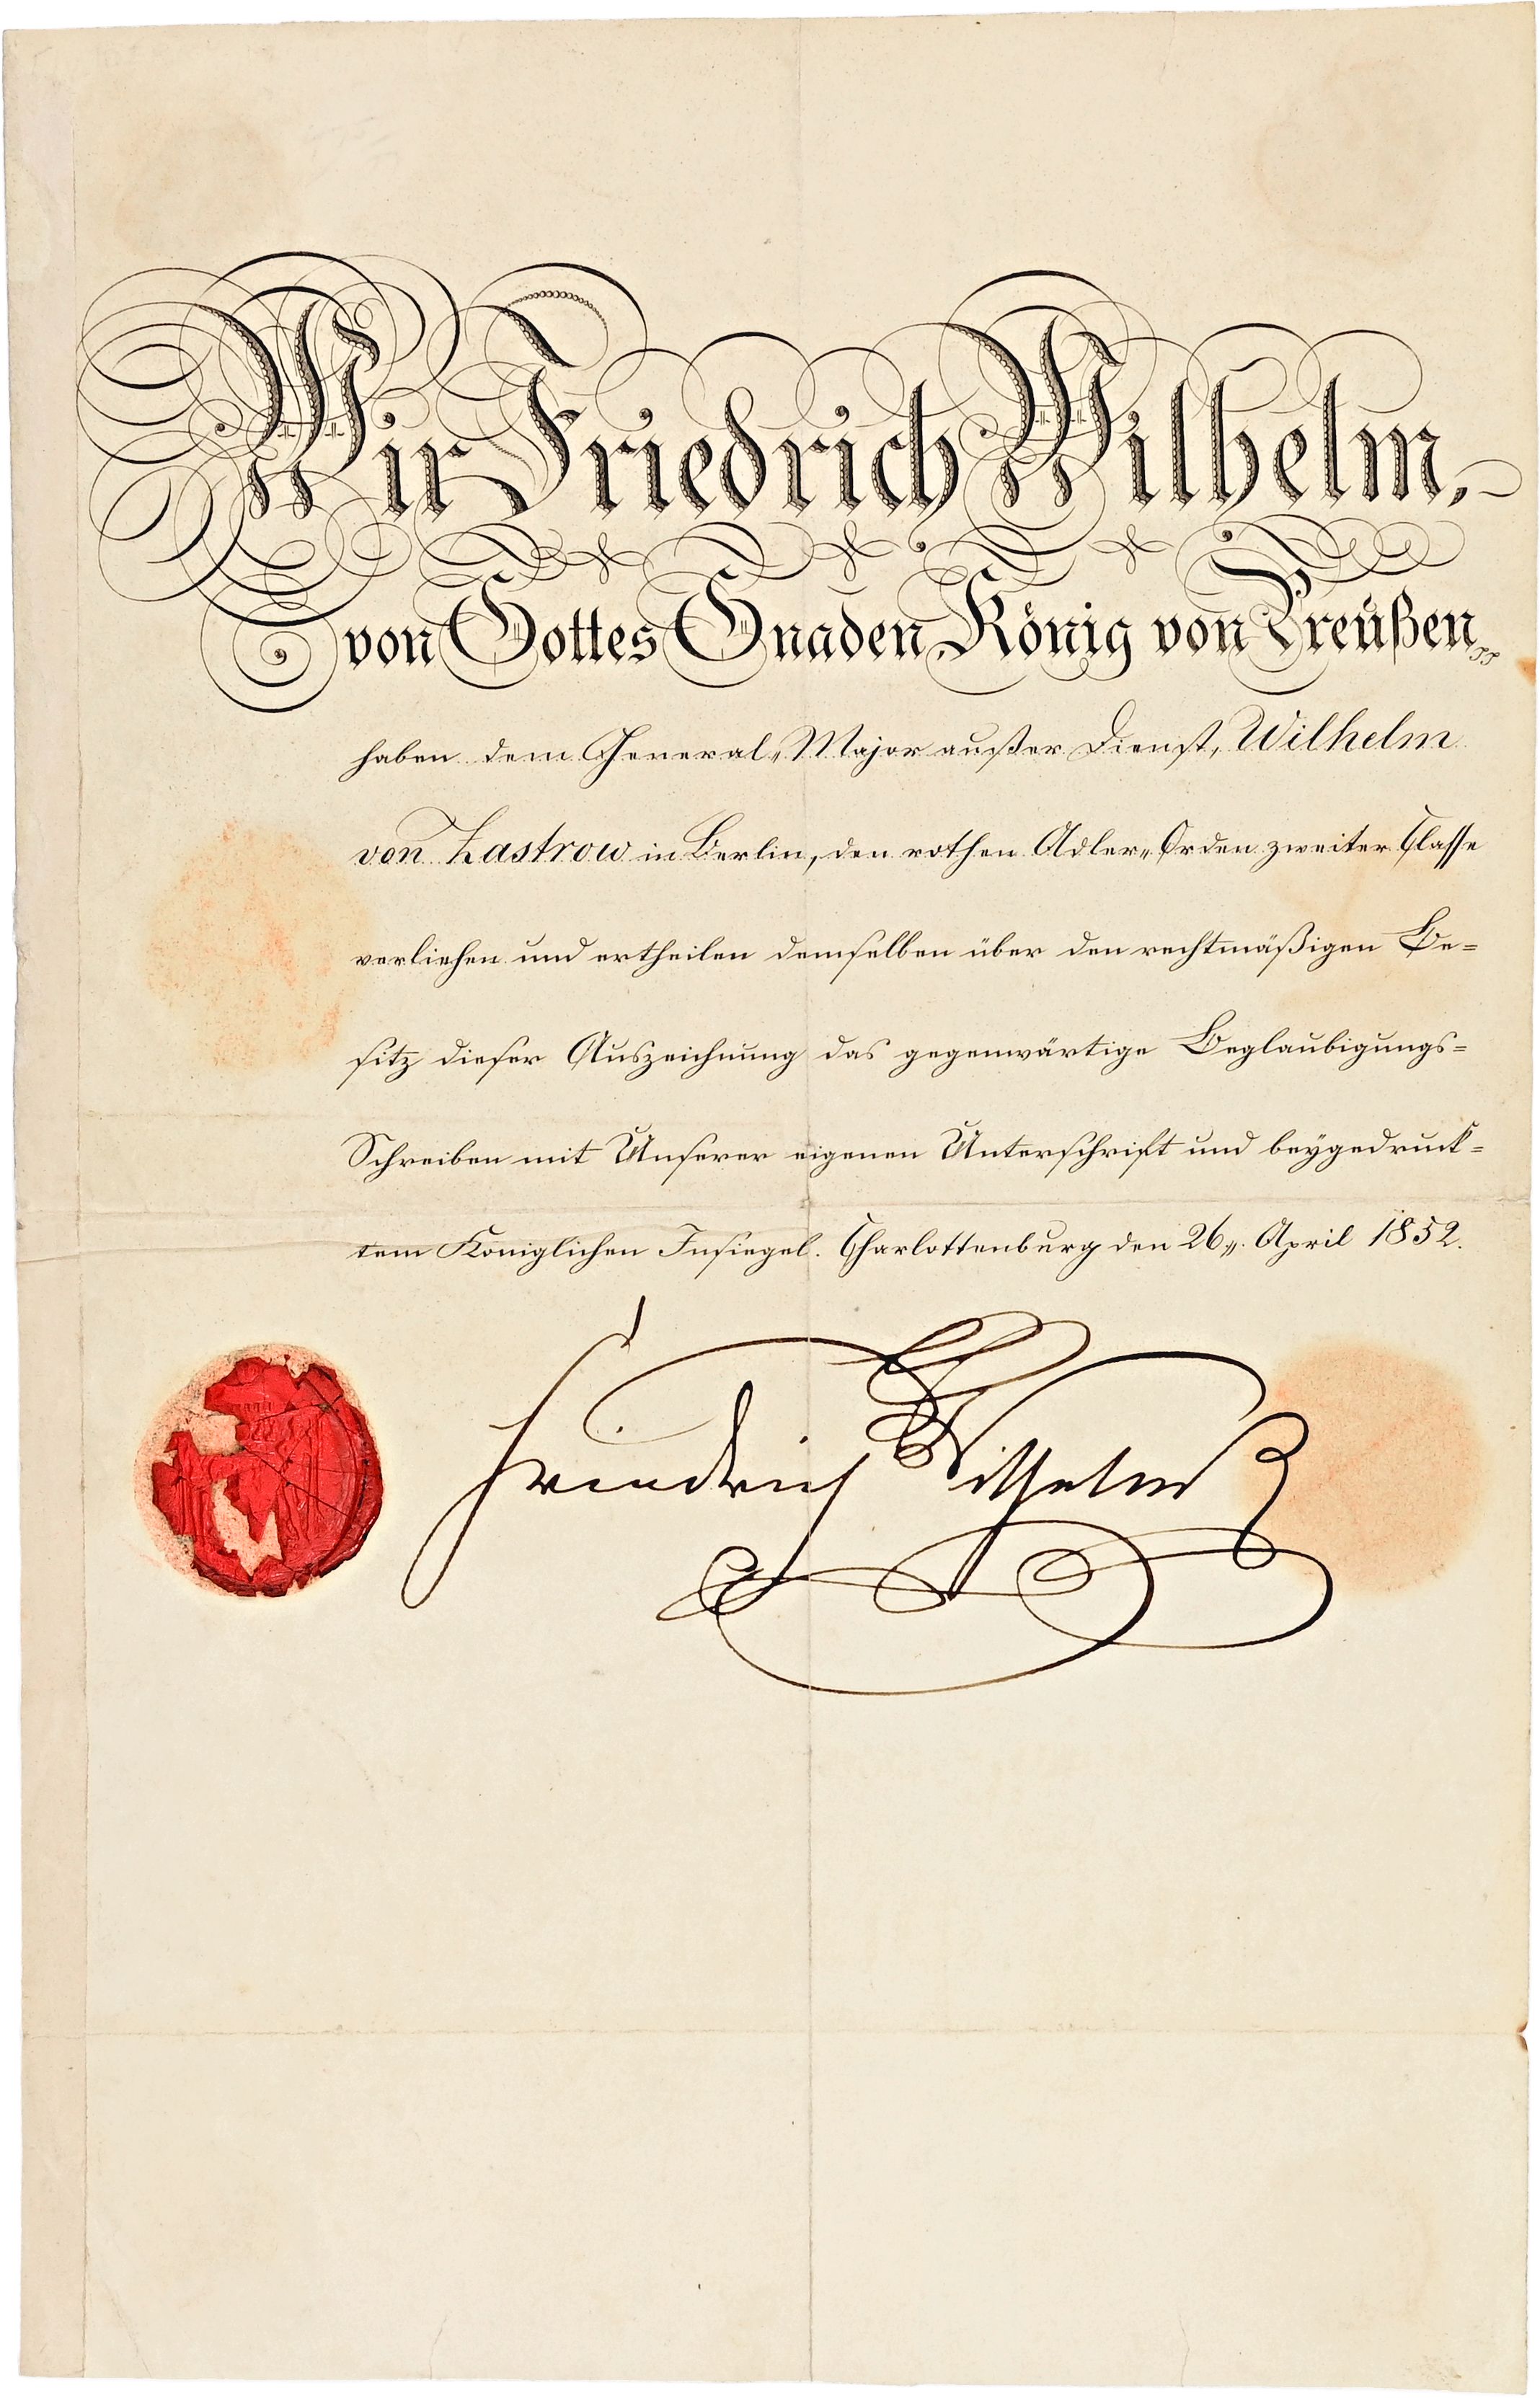 Wir Friedrich Wilhelm,
von Gottes Gnaden König von Preußen,
haben dem General-Major außer Dienst, Wilhelm
von Zastrow in Berlin, den rothen Adler-Orden zweiter Classe
verliehen und ertheilen demselben über den rechtmäßigen Be=
sitz dieser Auszeichnung das gegenwärtige Beglaubigungs=
Schreiben mit Unserer eigenen Unterschrift und beygedruck=
tem Königlichen Insiegel. Charlottenburg den 26. April 1852.
Friedrich Wilhelm